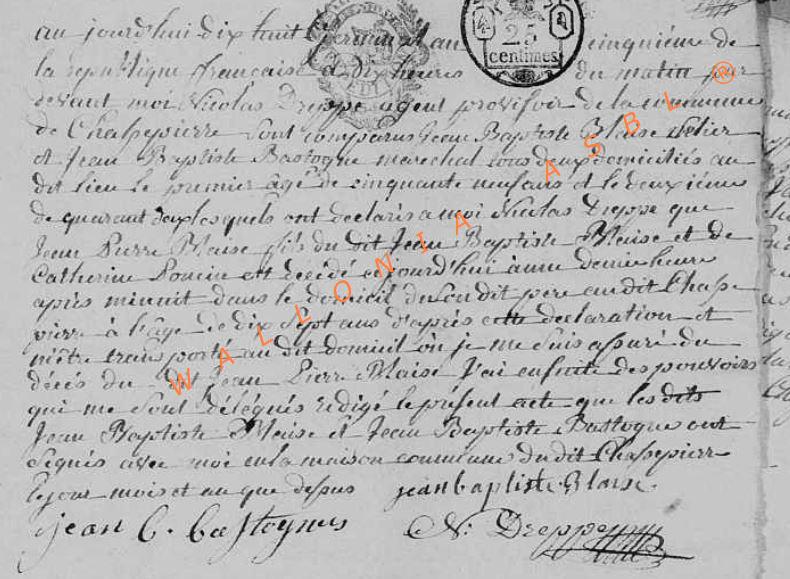 au jourd'hui dix huit germinal an cinquiéme de
la republique francaise a dix heures du matin par
devant moi Nicolas Dreppe agent provisoir de la commune
de Chassepierre sont comparus Jean Baptiste Blaise
et Jean Baptiste Bastogne marechal tous deux domiciliés au
dit lieu le premier âgé de cinquante neuf ans et le deuxiéme
de quarant deux lesquels ont declarés a moi Nicolas Dreppe que
Jean Pierre Blaise fils du dit Jean Baptiste Blaise et de
Catherine Poncin est decédé cejourd'hui à une demie heure
après minuit dans le domicil du son dit pere au dit Chasse
pierre à l'âge de dix sept ans d'après cette declaration et
m'être transporté au dit domicil où je me suis assuré du
décès du dit Jean Pierre Blaise J'ai ensuite des pouvoirs
qui me sont délégués redigé le présent acte que les dits
Jean Baptiste Blaise et Jean Baptiste Bastogne ont
signés avec moi en la maison commune du dit Chassepierre
le jour mois et an que dessus jean baptiste Blaise.
jean b. bastognes N: Dreppe
25
centimes
WALLONIA ASBL ®